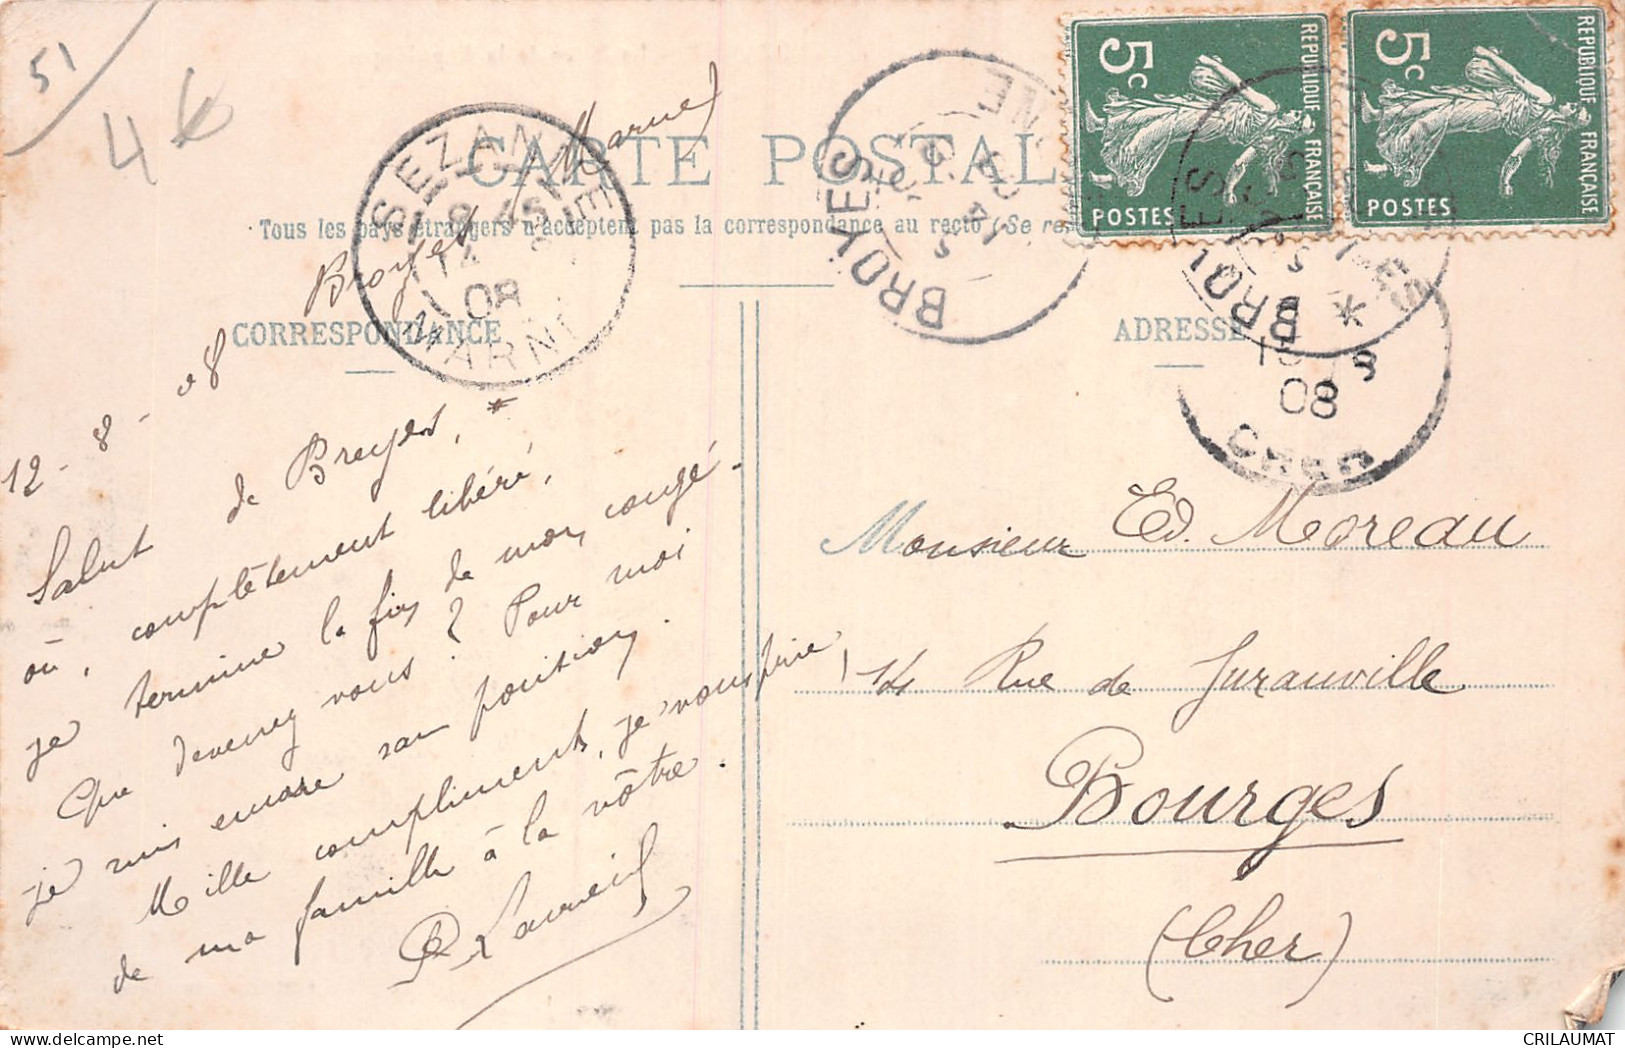 51
4€
CARTE POSTALE
Tous les pays étrangers n'acceptent pas la correspondance au recto (Se re
CORRESPONDANCE
ADRESSE
SEZANNE
14
08
MARNE
BROYES
14
08
BROYES
5c
REPUBLIQUE FRANÇAISE
POSTES
5c
REPUBLIQUE FRANÇAISE
POSTES
08
CHER
Broyes (Marne)
12 - 8 - 08
Salut de Broyes,
où, complètement libéré,
je termine la fin de mon congé.
Que devenez vous? Pour moi
je suis encore sans position.
Mille compliments, je vous prie,
de ma famille à la vôtre.
Monsieur Ed. Moreau
14 Rue de Juranville
Bourges
(Cher)
CRILAUMAT